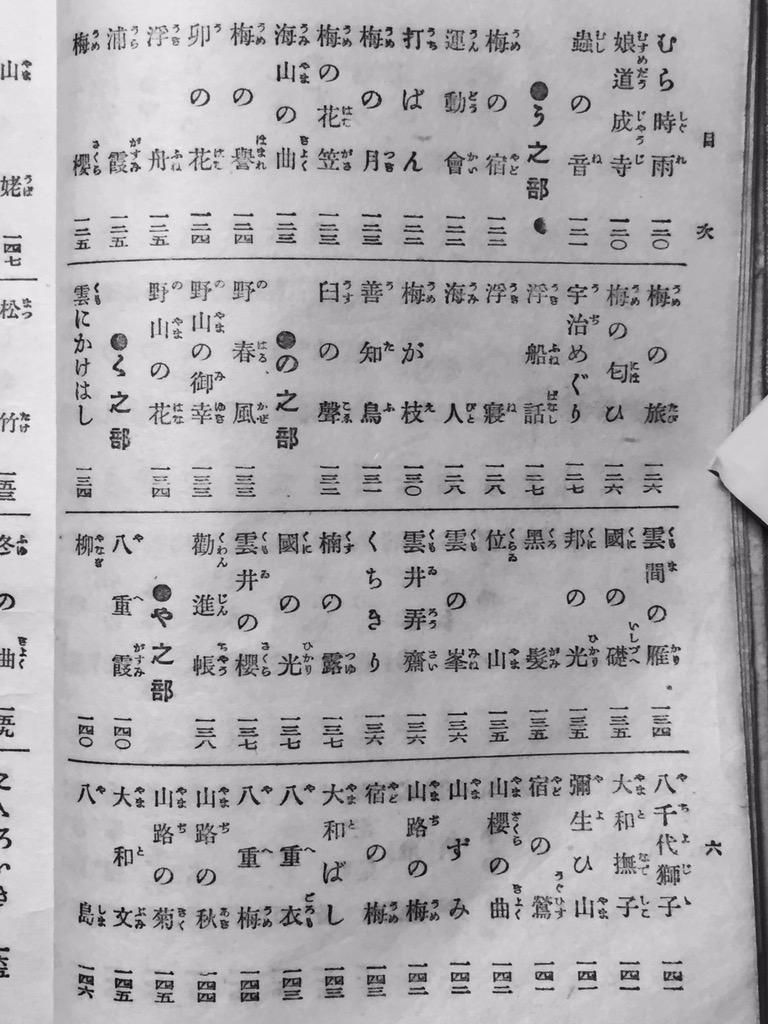 目次
むら時雨 一二〇
娘道成寺 一二〇
蟲の音 一二一
●う之部
梅の宿 一二二
運動會 一二二
打ばん 一二二
梅の月 一二三
梅の花笠 一二三
海山の曲 一二三
梅の譽 一二四
卯の花 一二四
浮舟 一二五
浦霞 一二五
梅櫻 一二五
梅の旅 一二六
梅の匂ひ 一二六
宇治めぐり 一二七
浮船話 一二七
浮寢 一二八
海人 一二八
梅が枝 一三〇
善知鳥 一三一
臼の聲 一三二
●の之部
野春風 一三三
野山の御幸 一三三
野山の花 一三四
●く之部
雲にかけはし 一三四
雲間の雁 一三四
國の礎 一三五
邦の光 一三五
黑髮 一三五
位山 一三五
雲の峯 一三六
雲井弄齋 一三六
くちきり 一三六
楠の露 一三七
國の光 一三七
雲井の櫻 一三七
勸進帳 一三八
●や之部
八重霞 一四〇
柳 一四〇
八千代獅子 一四一
大和撫子 一四一
彌生ひ山 一四一
宿の鶯 一四一
山櫻の曲 一四二
山ずみ 一四二
山路の梅 一四二
宿の梅 一四三
大和ばし 一四三
八重衣 一四三
八重梅 一四四
山路の秋 一四四
山路の菊 一四五
大和文 一四五
八島 一四六
六
山姥 一四七
松竹
冬の曲